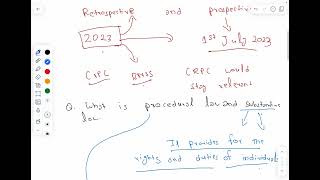 Retrospective and prospective
2023 1st July 2023
CRPC BNSS CRPC would
stay relevant
Q. What is procedural law and substantive
law.
It provides for the
rights and duties of individuals